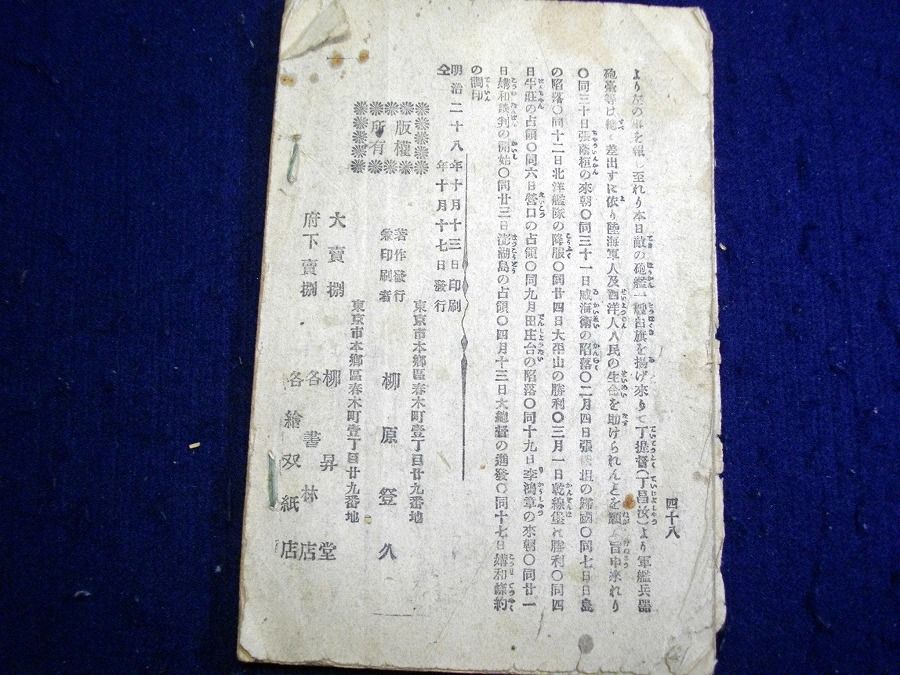 四十八
より左の事を報じ至れり本日敵の砲艦一艘白旗を揚げ來りて丁提督(丁昌汝)より軍艦兵器
砲臺等は總て差出すに依り陸海軍人及西洋人人民の生命を助けられんとを願ふ旨申來れり
〇同三十日張蔭桓の來朝〇同三十一日威海衛の陷落〇二月四日張 桓の歸國〇同七日日島
の陷落〇同十二日北洋艦隊の降服〇同廿四日大平山の勝利〇三月一日乾線堡れ勝利〇同四
日牛莊の占領〇同六日營口の占領〇同九月田庄台の陷落〇同十九日李鴻章の來朝〇同廿一
日媾和談判の開始〇同廿三日澎湖島の占領〇四月十三日大總督の進發〇同十七日媾和條約
の調印
明治二十八年十月十三日印刷
仝年十月十七日發行
東京市本鄉區春木町壹丁目廿九番地
著作發行兼印刷者 柳原登久
東京市本鄉區春木町壹丁目廿九番地
版權所有
大賣捌 柳昇堂
府下賣捌 各書林店
各繪双紙店